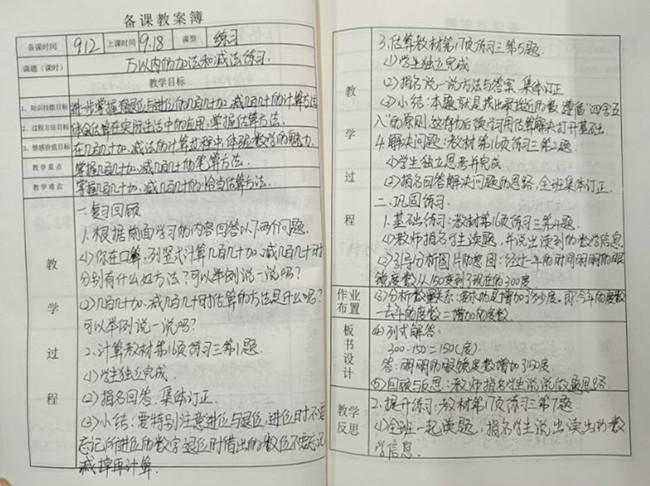 备课教案簿
备课时间 9.12 上课时间 9.18 课型 练习
课题（课时） 万以内的加法和减法练习.
教学目标
1、知识技能目标 进一步掌握不退位与进位的几百几十加、减几百几十的计算方法
2、过程方法目标 体会估算在实际生活中的应用,掌握估算方法.
3、情感价值目标 在几百几十加、减法的计算过程中,体验数学的魅力.
教学重点 掌握几百几十加、减几百几十的笔算方法.
教学难点 掌握几百几十加、减几百几十的恰当估算方法.
教学过程
一、复习回顾
1.根据前面学习的内容回答以下两个问题.
(1)你在口算、列竖式计算几百几十加、减几百几十时
分别有什么好方法?可以举例说一说吗?
(2)几百几十加、减几百几十时估算的方法是什么呢?
可以举例说一说吗?
2.计算教材第16页练习三第1题.
(1)学生独立完成.
(2)指名回答.集体订正.
(3)小结:要特别注意进位与退位,进位时不要
忘记所进位的数字,退位时借出的数位不要忘记
减掉再计算.
教学过程
3.估算教材第17页练习三第5题.
(1)学生独立完成
(2)指名说一说方法与答案,集体订正.
(3)小结:本题就是找出最接近的数,遵循“四舍五
入”的原则,这样为后续学习用估算解决打开基础.
4.解决问题:教材第16页练习三第2题.
(1)学生独立思考并完成.
(2)指名回答解决问题的思路,全班集体订正.
二、巩固练习.
1.基础练习:教材第16页练习三第4题.
(1)教师指名学生读题,并说出读到的数学信息.
(2)引导分析图片的意图:经过一年的时间明明的眼
镜度数从150度到了现在的300度
作业布置
(3)分析数量关系:要求的是增加了多少度.即:今年的度数
-去年的度数=增加的度数.
板书设计
(4)列式解答:
300-150=150(度)
答:明明的眼镜度数增加了150度
(5)回顾与反思:教师指名学生说说做题思路.
教学反思
2.提升练习:教材第17页练习三第7题
(1)全班一起读题,指名学生说出读出的数
学信息.